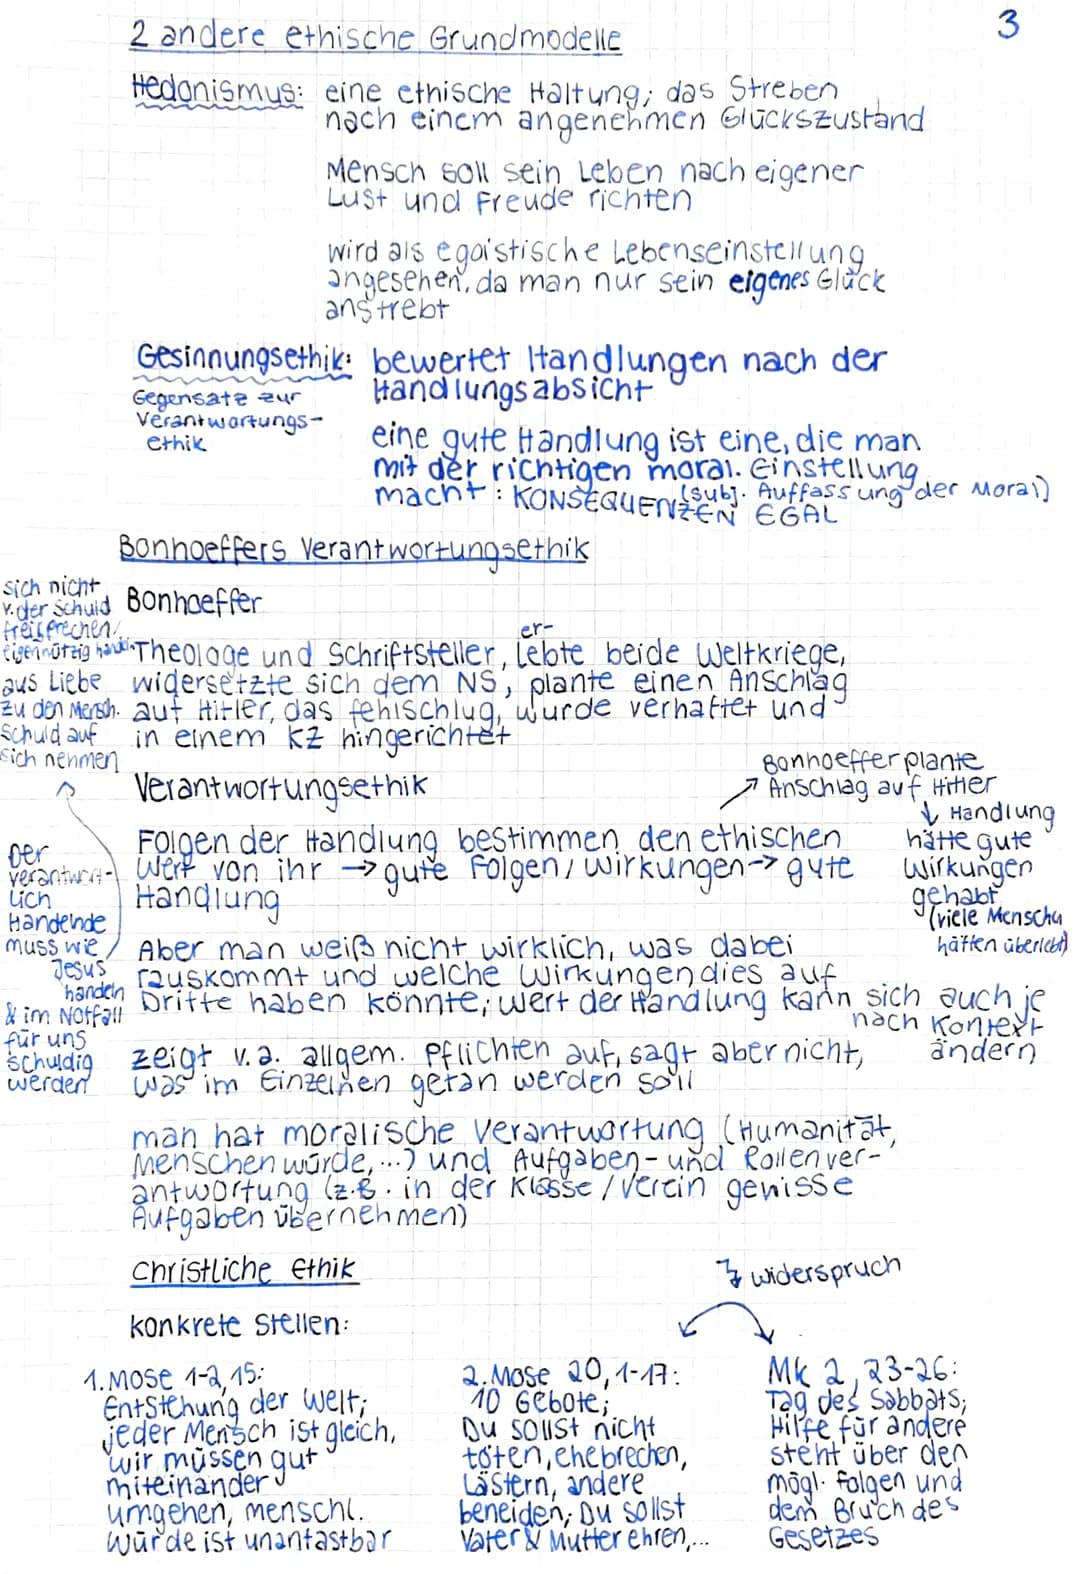 3
2 andere ethische Grundmodelle
Hedonismus: eine ethische Haltung; das Streben
nach einem angenehmen Glückszustand
Mensch soll sein Leben nach eigener
Lust und Freude richten
wird als egoistische Lebenseinstellung
angesehen, da man nur sein eigenes Glück
anstrebt
Gesinnungsethik: bewertet Handlungen nach der
Handlungsabsicht
Gegensatz zur
Verantwortungs-
ethik
eine gute Handlung ist eine, die man
mit der richtigen moral. Einstellung
macht: KONSEQUENZEN EGAL
(subj. Auffassung der Moral)
Bonhoeffers Verantwortungsethik
Bonhoeffer
Theologe und Schriftsteller, erlebte beide Weltkriege,
widersetzte sich dem NS, plante einen Anschlag
auf Hitler, das fehlschlug, wurde verhaftet und
in einem KZ hingerichtet
sich nicht
v. der Schuld
freisprechen/
eigennützig
aus Liebe
zu den Mensch.
Schuld auf
sich nehmen
Verantwortungsethik
Bonhoeffer plante
↗ Anschlag auf Hitler
↓ Handlung
hätte gute
Wirkungen
gehabt
(viele Menschen
hätten überlebt)
Folgen der Handlung bestimmen den ethischen
Wert von ihr → gute Folgen/Wirkungen → gute
Handlung
Der
verantwort-
lich
Handelnde
muss wie
Jesus
handeln
& im Notfall
für uns
schuldig
werden
Aber man weiß nicht wirklich, was dabei
rauskommt und welche Wirkungen dies auf
Dritte haben könnte; Wert der Handlung kann sich auch je
nach Kontext
ändern
zeigt v.a. allgem. Pflichten auf, sagt aber nicht,
was im Einzelnen getan werden soll
man hat moralische Verantwortung (Humanität,
Menschenwürde,...) und Aufgaben- und Rollenver-
antwortung (z.B. in der Klasse/Verein gewisse
Aufgaben übernehmen)
Christliche Ethik
Widerspruch
konkrete Stellen:
1. Mose 1-2,15:
Entstehung der Welt;
jeder Mensch ist gleich,
wir müssen gut
miteinander
umgehen, menschl.
Würde ist unantastbar
2. Mose 20,1-17:
10 Gebote;
Du sollst nicht
töten, ehebrechen,
lästern, andere
beneiden; Du sollst
Vater & Mutter ehren,...
Mk 2, 23-26:
Tag des Sabbats;
Hilfe für andere
steht über den
mögl. Folgen und
dem Bruch des
Gesetzes